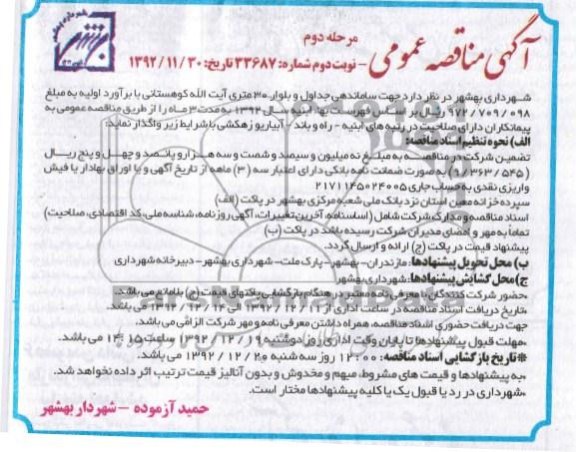 آگهی مناقصه عمومی
مرحله دوم
– نوبت دوم شماره: ۳۳۶۸۷ تاریخ: ۱۳۹۲/۱۱/۳۰
شهرداری بهشهر در نظر دارد جهت ساماندهی جداول و بلوار ۳۰ متری آیت الله کوهستانی با برآورد اولیه به مبلغ
۹۷۲/۷۰۹/۰۹۸ ریال بر اساس فهرست بها ابنیه سال ۱۳۹۲ به مدت ۳ ماه را از طریق مناقصه عمومی به
پیمانکاران دارای صلاحیت در رتبه های ابنیه – راه و باند – آبیاری و زهکشی با شرایط زیر واگذار نماید:
الف) نحوه تنظیم اسناد مناقصه:
تضمین شرکت در مناقصه به مبلغ نه میلیون و سیصد و شصت و سه هزار و پانصد و چهل و پنج ریال
به صورت ضمانت نامه بانکی دارای اعتبار سه (۳) ماهه از تاریخ آگهی و یا اوراق بهادار یا فیش
واریزی نقدی به حساب جاری ۲۱۷۱۱۴۵۰۲۴۰۰۵
سپرده خزانه معین استان نزد بانک ملی شعبه مرکزی بهشهر در پاکت (الف)
اسناد مناقصه و مدارک شرکت شامل (اساسنامه، آخرین تغییرات، آگهی روزنامه، شناسه ملی، کد اقتصادی، صلاحیت)
تماماً به مهر و امضای مدیران شرکت رسیده باشد در پاکت (ب)
پیشنهاد قیمت در پاکت (ج) ارائه و ارسال گردد.
ب) محل تحویل پیشنهادها: مازندران- بهشهر- پارک ملت- شهرداری بهشهر- دبیرخانه شهرداری
ج) محل گشایش پیشنهادها: شهرداری بهشهر
-حضور شرکت کنندگان با معرفی نامه معتبر در هنگام بازگشایی پاکتهای قیمت (ج) بلامانع می باشد.
-تاریخ دریافت اسناد مناقصه در ساعت اداری از ۱۳۹۲/۱۲/۱ الی ۱۳۹۲/۱۲/۱۴ می باشد.
جهت دریافت حضوری اسناد مناقصه، همراه داشتن معرفی نامه و مهر شرکت الزامی می باشد.
-مهلت قبول پیشنهادها تا پایان وقت اداری روز دوشنبه ۱۳۹۲/۱۲/۱۹ و ساعت ۱۴:۱۵ می باشد.
*تاریخ بازگشایی اسناد مناقصه: ۱۲:۰۰ روز سه شنبه ۱۳۹۲/۱۲/۲۰ می باشد.
-به پیشنهادها و قیمت های مشروط، مبهم و مخدوش و بدون آنالیز قیمت ترتیب اثر داده نخواهد شد.
-شهرداری در رد یا قبول یک یا کلیه پیشنهادها مختار است.
حمید آزموده – شهردار بهشهر